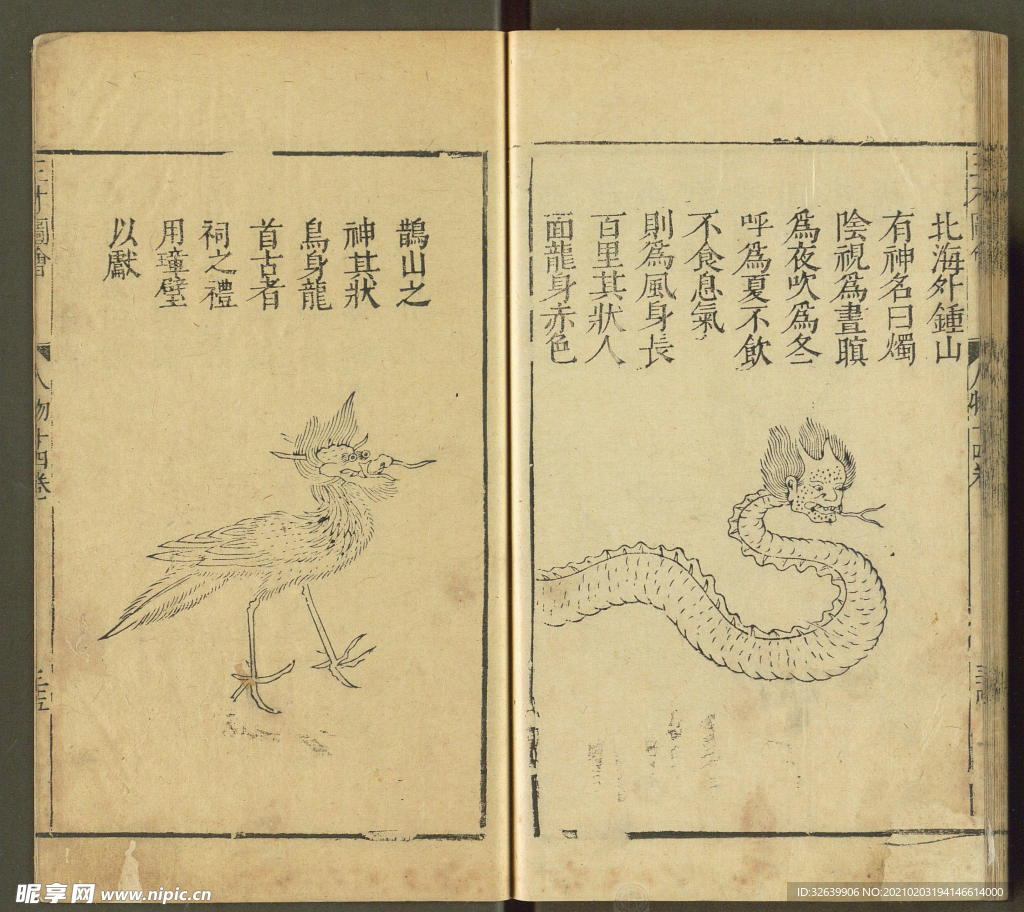 北海外鍾山
有神名曰燭
陰視爲晝瞑
爲夜吹爲冬
呼爲夏不飲
不食息氣
則爲風身長
百里其狀人
面龍身赤色
鵲山之
神其狀
鳥身龍
首古者
祠之禮
用璋璧
以獻
三才圖會
人物十四卷
昵享网 www.nipic.cn
ID:32639906 NO:20210203194146614000